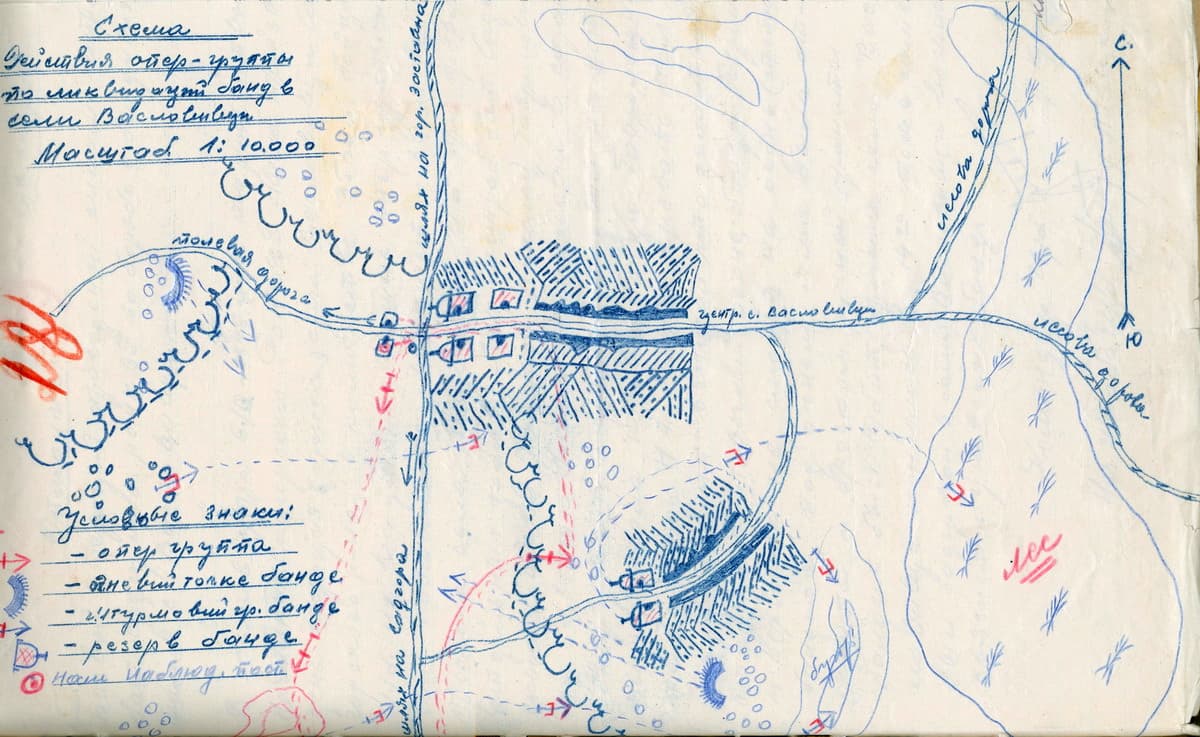 Схема
Действия опер-группы
по ликвидаций банд в
сели Васловивци
Масштаб 1:10.000
шлях на гор. Заставна
С.
лісова дорога
полевая дорога
центр. с. Васловивци
Ю
лісова дорога
18
Условные знаки:
- опер группа
- огневий точке банде
- штурмовий гр. банде
- резерв банде
Наш наблюд. пост
шлях на Садгора
лес
бугри